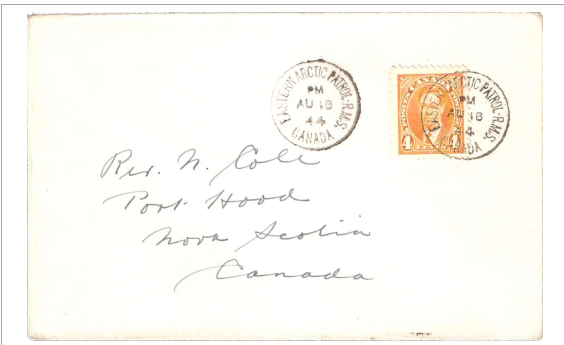 EASTERN ARCTIC PATROL-R.M.S.
PM
AU 18
44
CANADA
EASTERN ARCTIC PATROL-R.M.S.
PM
AU 18
44
CANADA
4
4
Rev. N. Cole
Port Hood
Nova Scotia
Canada